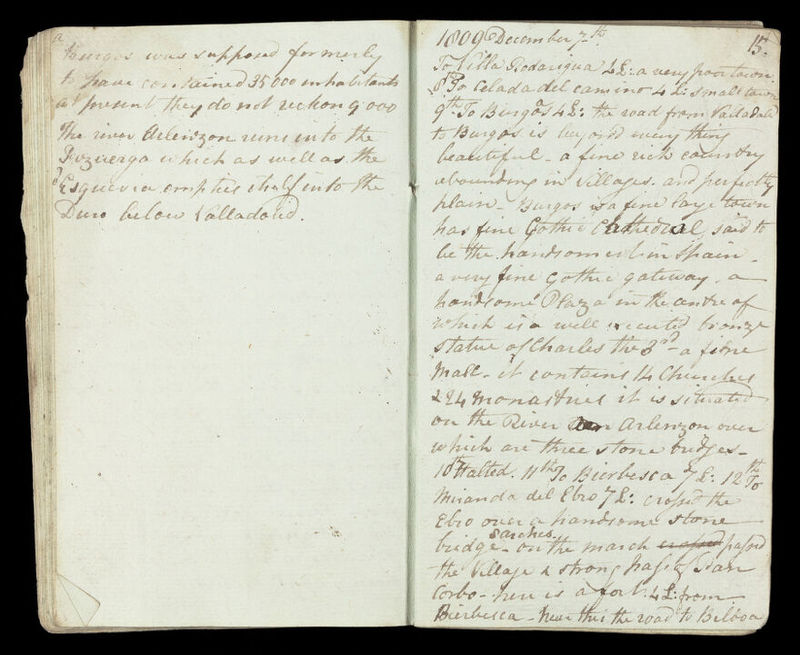 a
Burgos was supposed formerly
to have contained 35 000 inhabitants
at present they do not reckon 9 000
The river Arlenzon runs into the
which as well as the
Esguevia empties itself into the
Duro below Valladolid.
15.
1809 December 7th
To Villa Rodarigua 4 L: a very poor town
8th To Celada del camino 4 L: small town
9th To Burgos 4 L: the road from Valladolid
to Burgos is beyond every thing
beautiful - a fine rich country
abounding in Villages. and perfectly
plain - Burgos is a fine large town
has fine Gothic Cathedral, said to
be the handsomest in Spain -
a very fine Gothic gateway. a
handsome Plaza in the centre of
which is a well executed bronze
statue of Charles the 3rd - a fine
Mall - it contains 14 Churches
& 24 Monasteries it is situated
on the River Arlenzon over
which are three stone bridges -
10th Halted. 11th To Bierbesca 7 L: 12th To
Miranda del Ebro 7 L: crossed the
Ebro over a handsome stone
bridge - 8 arches. on the march crossed passed
the Village & strong pass of Pan
Corbo - here is a fort. 4 L: from
Bierbesca - near this the road to Bilboa